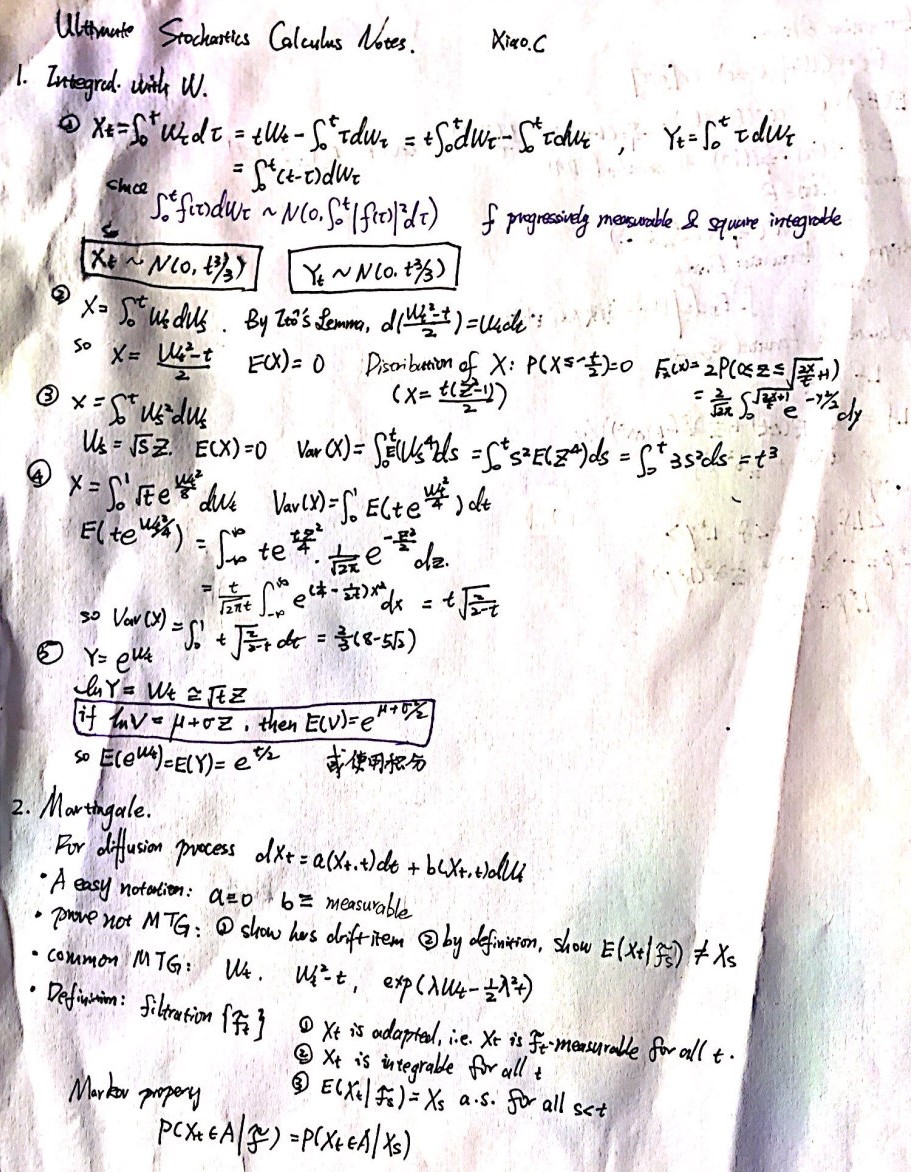 Ultimate Stochastics Calculus Notes. Xiao.C
1. Integral. with W.
① Xt=∫₀ᵗ Wτdτ = tWt - ∫₀ᵗ τdWτ = t∫₀ᵗdWτ - ∫₀ᵗ τdWτ , Yt=∫₀ᵗ τdWτ
= ∫₀ᵗ(t-τ)dWτ
since ∫₀ᵗf(τ)dWτ ~ N(0, ∫₀ᵗ|f(τ)|²dτ) f progressively measurable & square integrable
Xt ~ N(0, t³/3) Yt ~ N(0, t³/3)
② X= ∫₀ᵗ WsdWs . By Itô's Lemma, d((Wt²-t)/2)=Wtdt
so X= (Wt²-t)/2 E(X)=0 Disribution of X: P(X≤-t/2)=0 Fx(x)= 2P(0≤Z≤√(2x/t+1))
(X= t(Z²-1)/2) = 2/√2π ∫₀^√(2x/t+1) e^(-y²/2) dy
③ X=∫₀ᵗ Ws²dWs
Ws = √s Z. E(X)=0 Var(X)=∫₀ᵗE(Ws⁴)ds =∫₀ᵗ s²E(Z⁴)ds = ∫₀ᵗ 3s²ds = t³
④ X=∫₀¹ √t e^(Wt²/8) dWt Var(X)=∫₀¹ E(te^(Wt²/4)) dt
E(te^(Wt²/4)) = ∫₋∞^∞ te^(tz²/4) · 1/√2π e^(-z²/2) dz.
= t/√2πt ∫₋∞^∞ e^((1/4 - 1/2t)x²) dx = t√(2/(2-t))
so Var(X) = ∫₀¹ t√(2/(2-t)) dt = 2/3(8-5√2)
⑤ Y= e^Wt
lnY= Wt ≅ √t Z
if lnV = μ+σZ , then E(V)=e^(μ+σ²/2)
so E(e^Wt)=E(Y)= e^(t/2) 或使用积分
2. Martingale.
For diffusion process dXt = a(Xt,t)dt + b(Xt,t)dWt
· A easy notation: a≡0 b≡ measurable
· prove not MTG: ① show has drift item ② by definition, show E(Xt|Fs) ≠ Xs
· common MTG: Wt. Wt²-t, exp(λWt-½λ²t)
· Definition: filtration {Ft}
① Xt is adapted, i.e. Xt is Ft-measurable for all t.
② Xt is integrable for all t
③ E(Xt|Fs)=Xs a.s. for all s<t
Markov propery
P(Xt∈A|F) =P(Xt∈A|Xs)